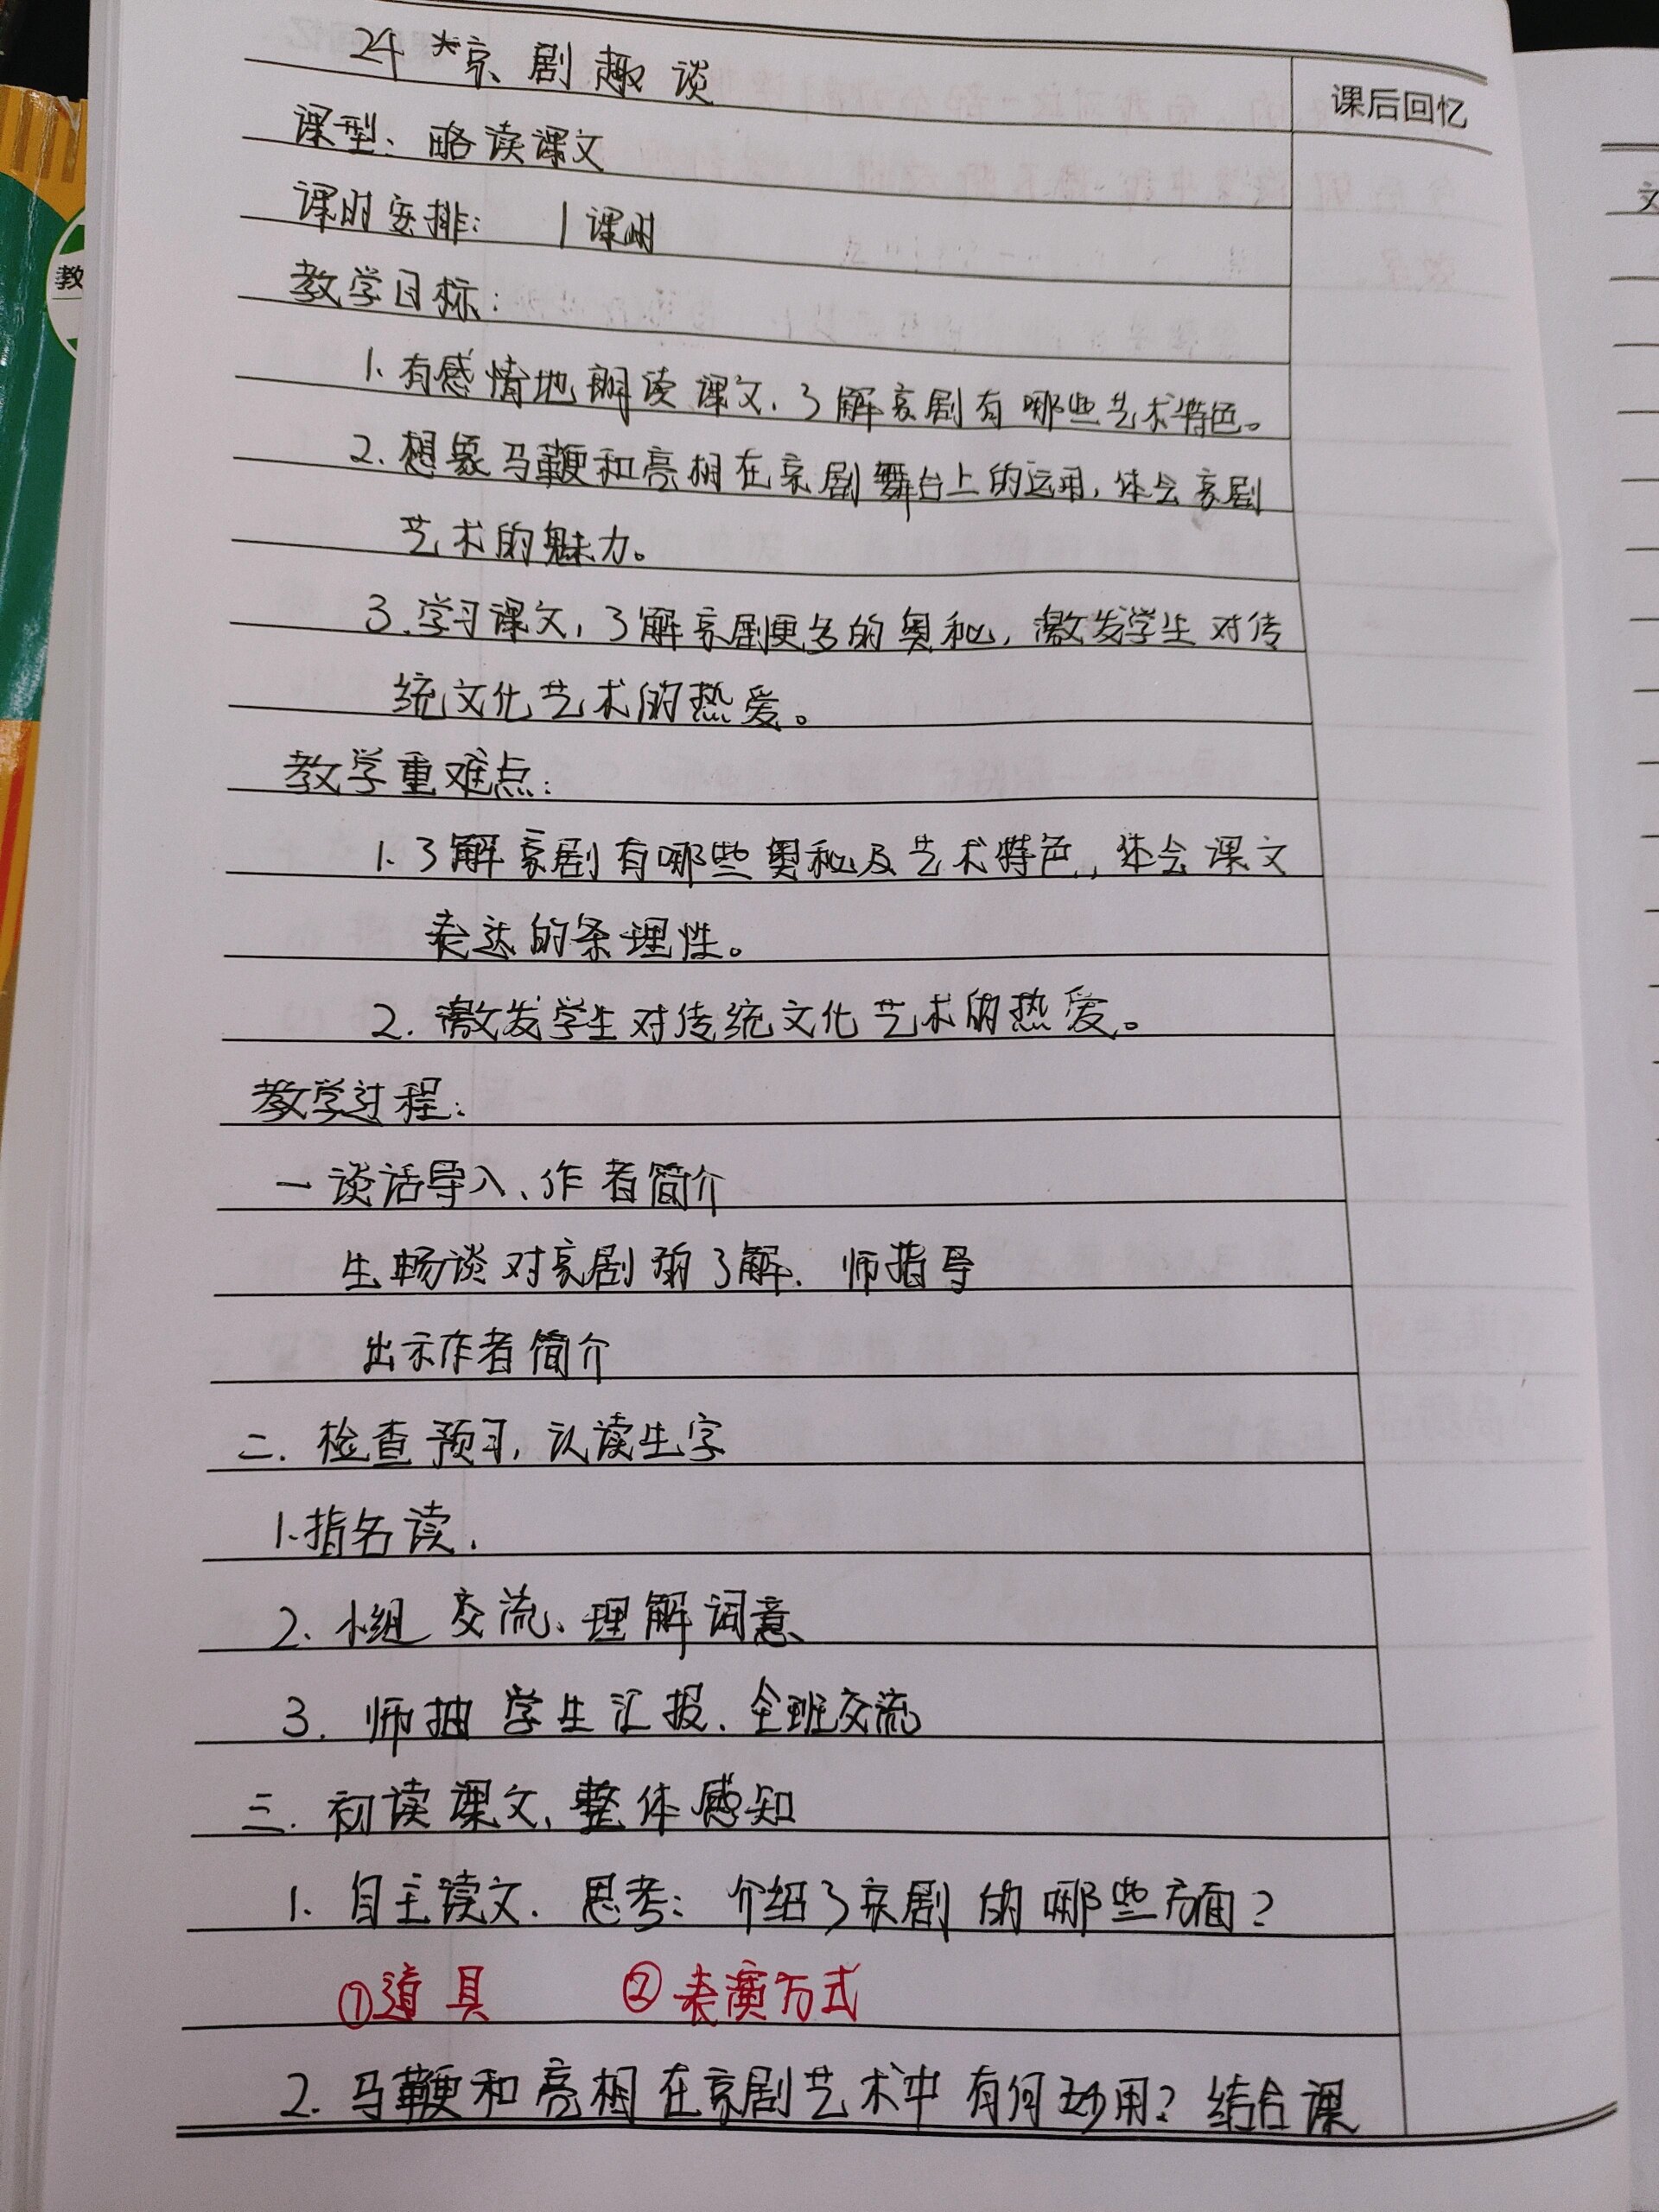 24 *京剧趣谈
课后回忆
课型：略读课文
课时安排： 1课时
教学目标：
1.有感情地朗读课文，了解京剧有哪些艺术特色。
2.想象马鞭和亮相在京剧舞台上的运用，体会京剧
艺术的魅力。
3.学习课文，了解京剧更多的奥秘，激发学生对传
统文化艺术的热爱。
教学重难点：
1.了解京剧有哪些奥秘及艺术特色，体会课文
表达的条理性。
2.激发学生对传统文化艺术的热爱。
教学过程：
一谈话导入、作者简介
生畅谈对京剧的了解．师指导
出示作者简介
二.检查预习,认读生字
1.指名读.
2.小组交流、理解词意
3.师抽学生汇报、全班交流
三.初读课文、整体感知
1.自主读文．思考：介绍了京剧的哪些方面？
①道具 ②表演方式
2.马鞭和亮相在京剧艺术中有何妙用？结合课
教
文